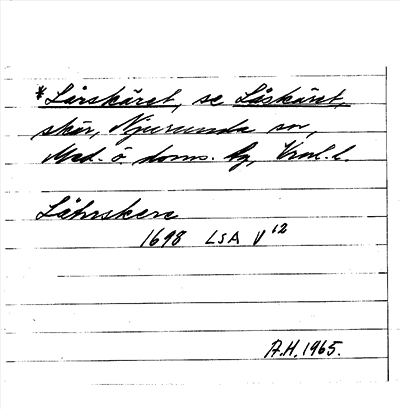 *Lårskäret, se Låskäret,
skär, Njurunda sn,
Med. ö doms. hg, Vnl. l.
Låhrskere
1698 LSA V 12
A.H. 1965.